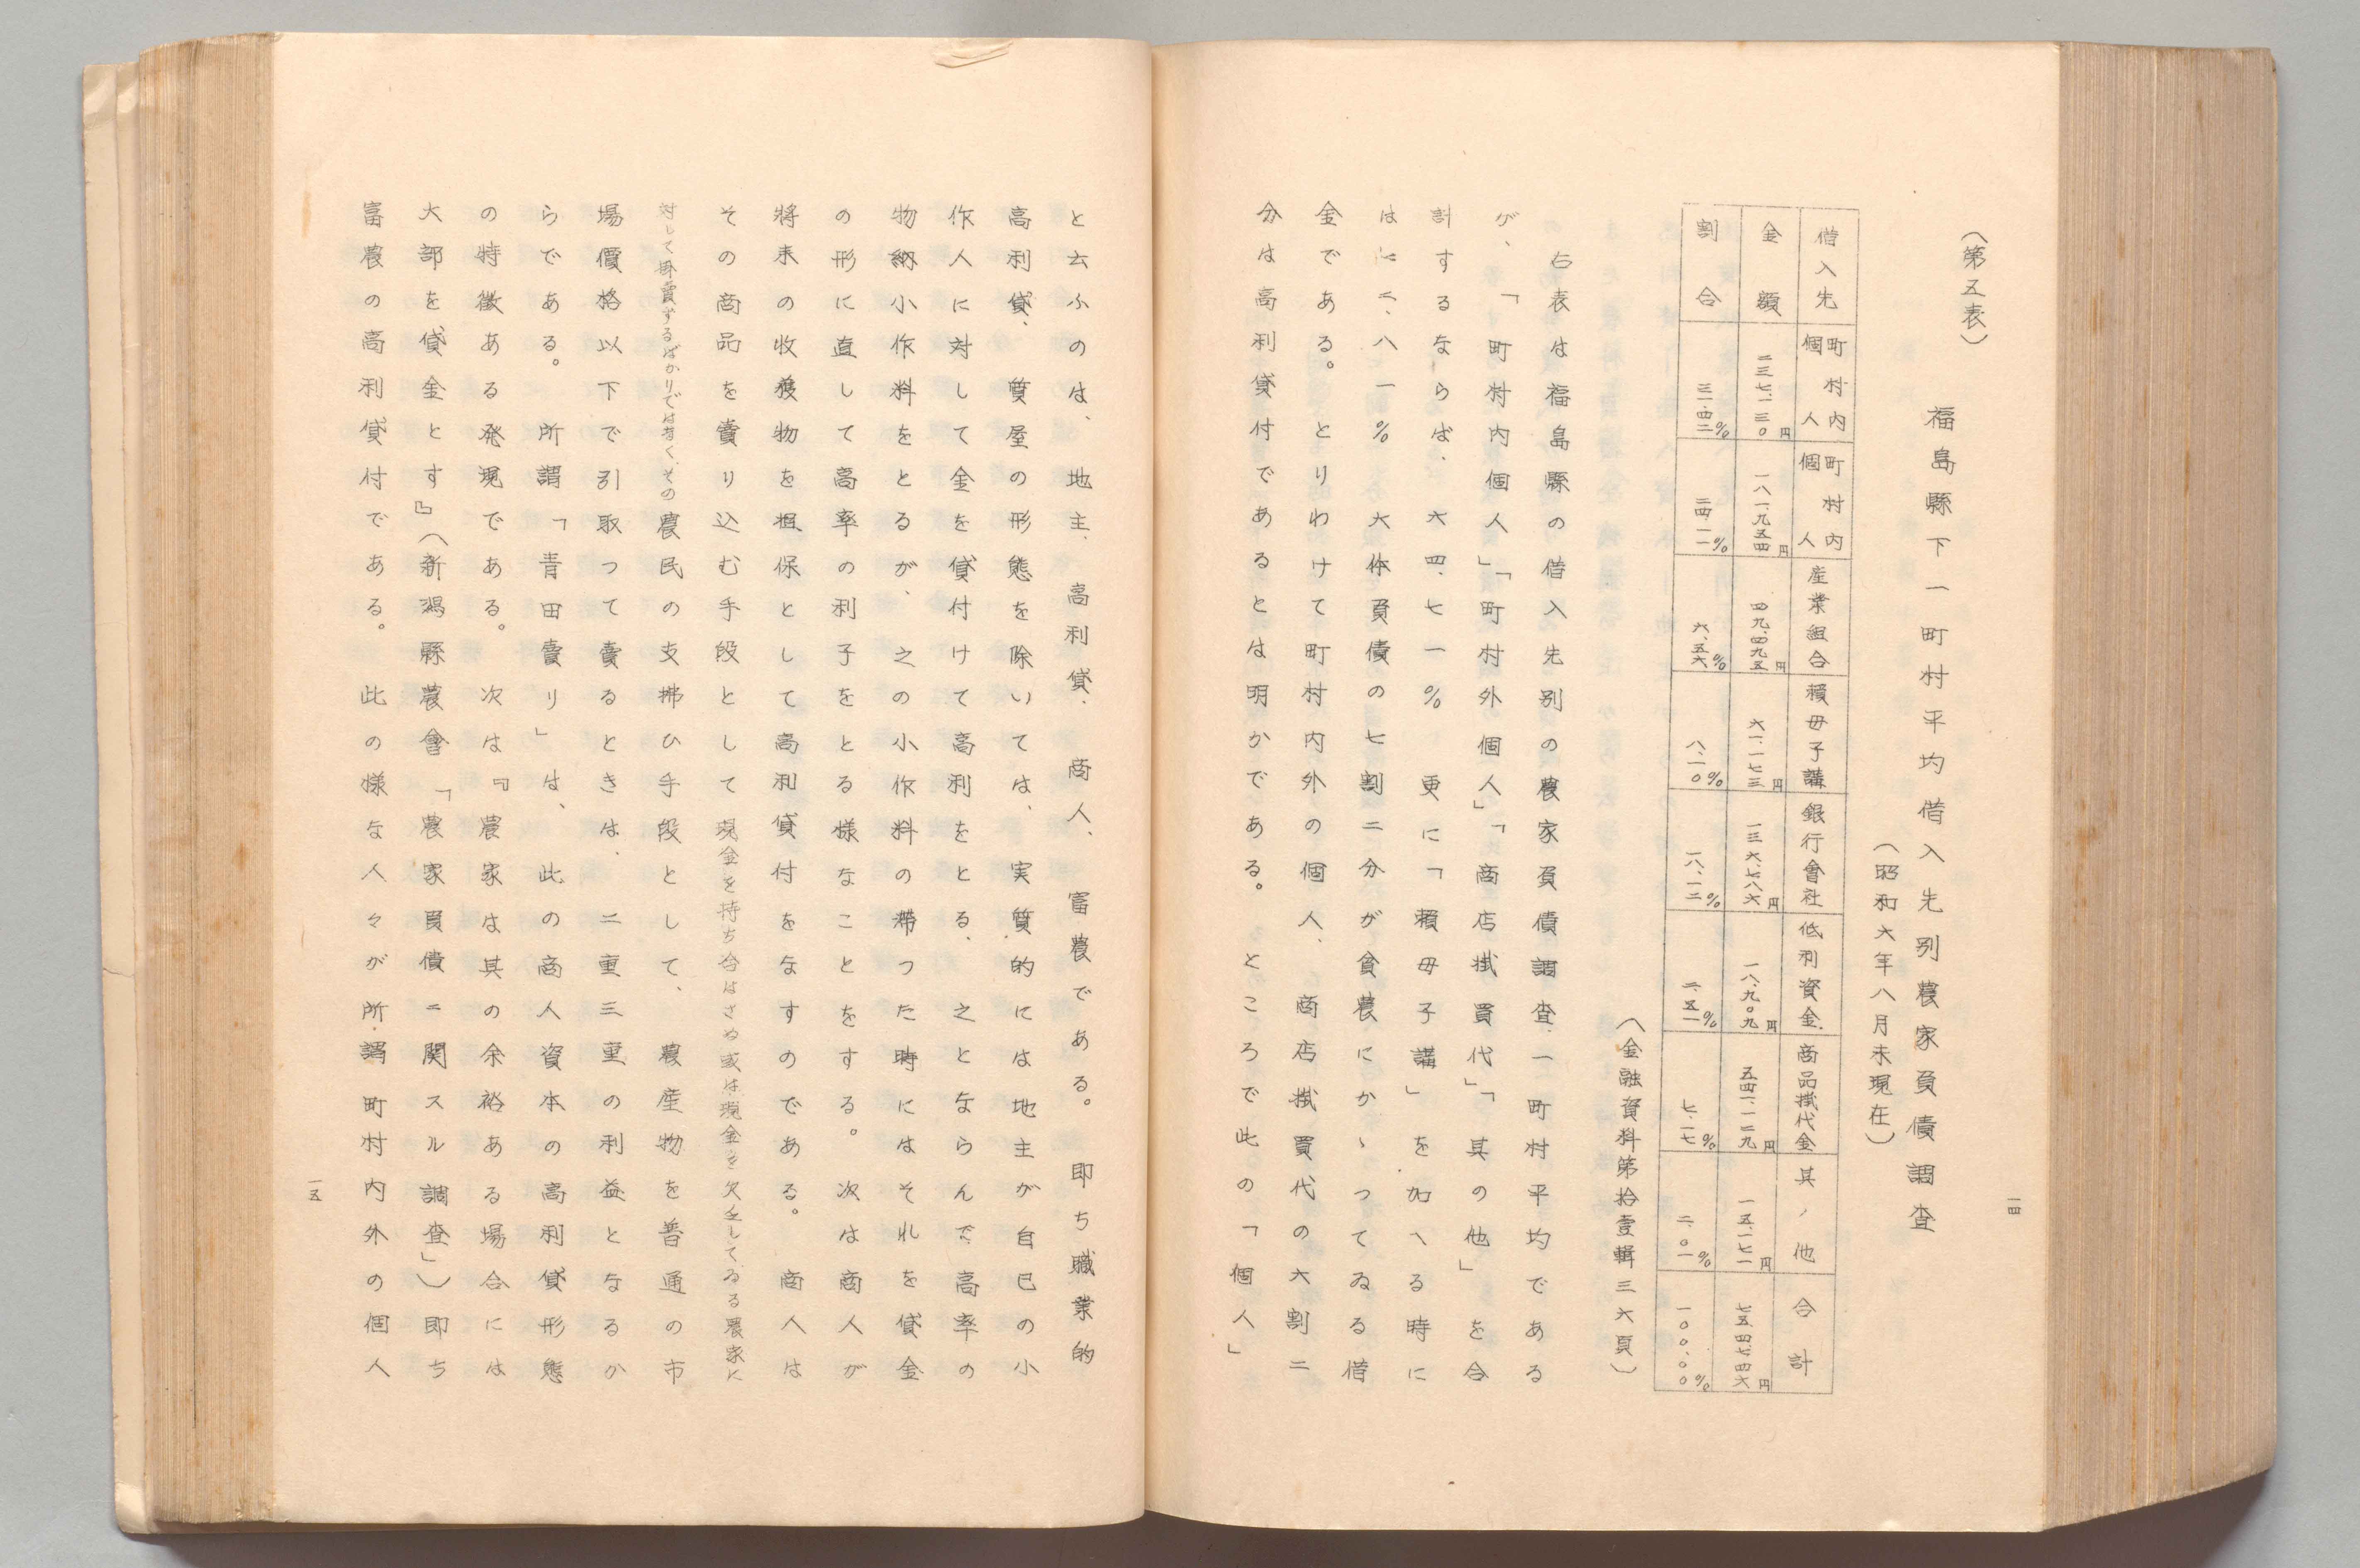 一四
(第五表)
福島縣下一町村平均借入先別農家負債調査
(昭和六年八月末現在)
借入先 町村内個人 町村内個人 産業組合 頼母子講 銀行會社 低利資金 商品掛代金 其ノ他 合計
金額 二三七、一三〇円 一八一、九五四円 四九、四九五円 六一、一七三円 一三六、七八六円 一八、九〇九円 五四、一二九円 一五、一七一円 七五四、七四六円
割合 三一・四二% 二四・一一% 六・五六% 八・一〇% 一八・一二% 二・五一% 七・一七% 二・〇一% 一〇〇・〇〇%
(金融資料第拾壹輯三六頁)
右表は福島縣の借入先別の農家負債調査、一町村平均である
が、「町村内個人」「町村外個人」「商店掛買代」「其の他」を合
計するならば、六四、七一% 更に「頼母子講」を加へる時に
は七二、八一% 大体負債の七割二分が貧農にかゝつてゐる借
金である。とりわけて町村内外の個人、商店掛買代の六割二
分は高利貸付であるとは明かである。ところで此の「個人」
と云ふのは、地主、高利貸、商人、富農である。即ち職業的
高利貸、質屋の形態を除いては、実質的には地主が自己の小
作人に対して金を貸付けて高利をとる、之とならんで高率の
物納小作料をとるが、之の小作料の滞つた時にはそれを貸金
の形に直して高率の利子をとる様なことをする。次は商人が
將来の收獲物を担保として高利貸付をなすのである。商人は
その商品を賣り込む手段として現金を持ち合はさぬ或は現金を欠乏してゐる農家に
対して掛賣するばかりではなく、その農民の支拂ひ手段として、農産物を普通の市
場價格以下で引取つて賣るときは、二重三重の利益となるか
らである。所謂「青田賣り」は、此の商人資本の高利貸形態
の特徴ある発現である。次は『農家は其の余裕ある場合には
大部を貸金とす』(新潟縣農會「農家負債ニ関スル調査」)即ち
富農の高利貸付である。此の様な人々が所謂町村内外の個人
一五